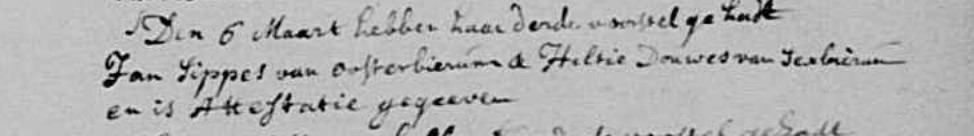 Den 6 Maart hebben haar derde voorstel gehadt
Jan Sippes van oosterbierum & Hiltie Douwes van Sexbierum
en is Attestatie gegeeven